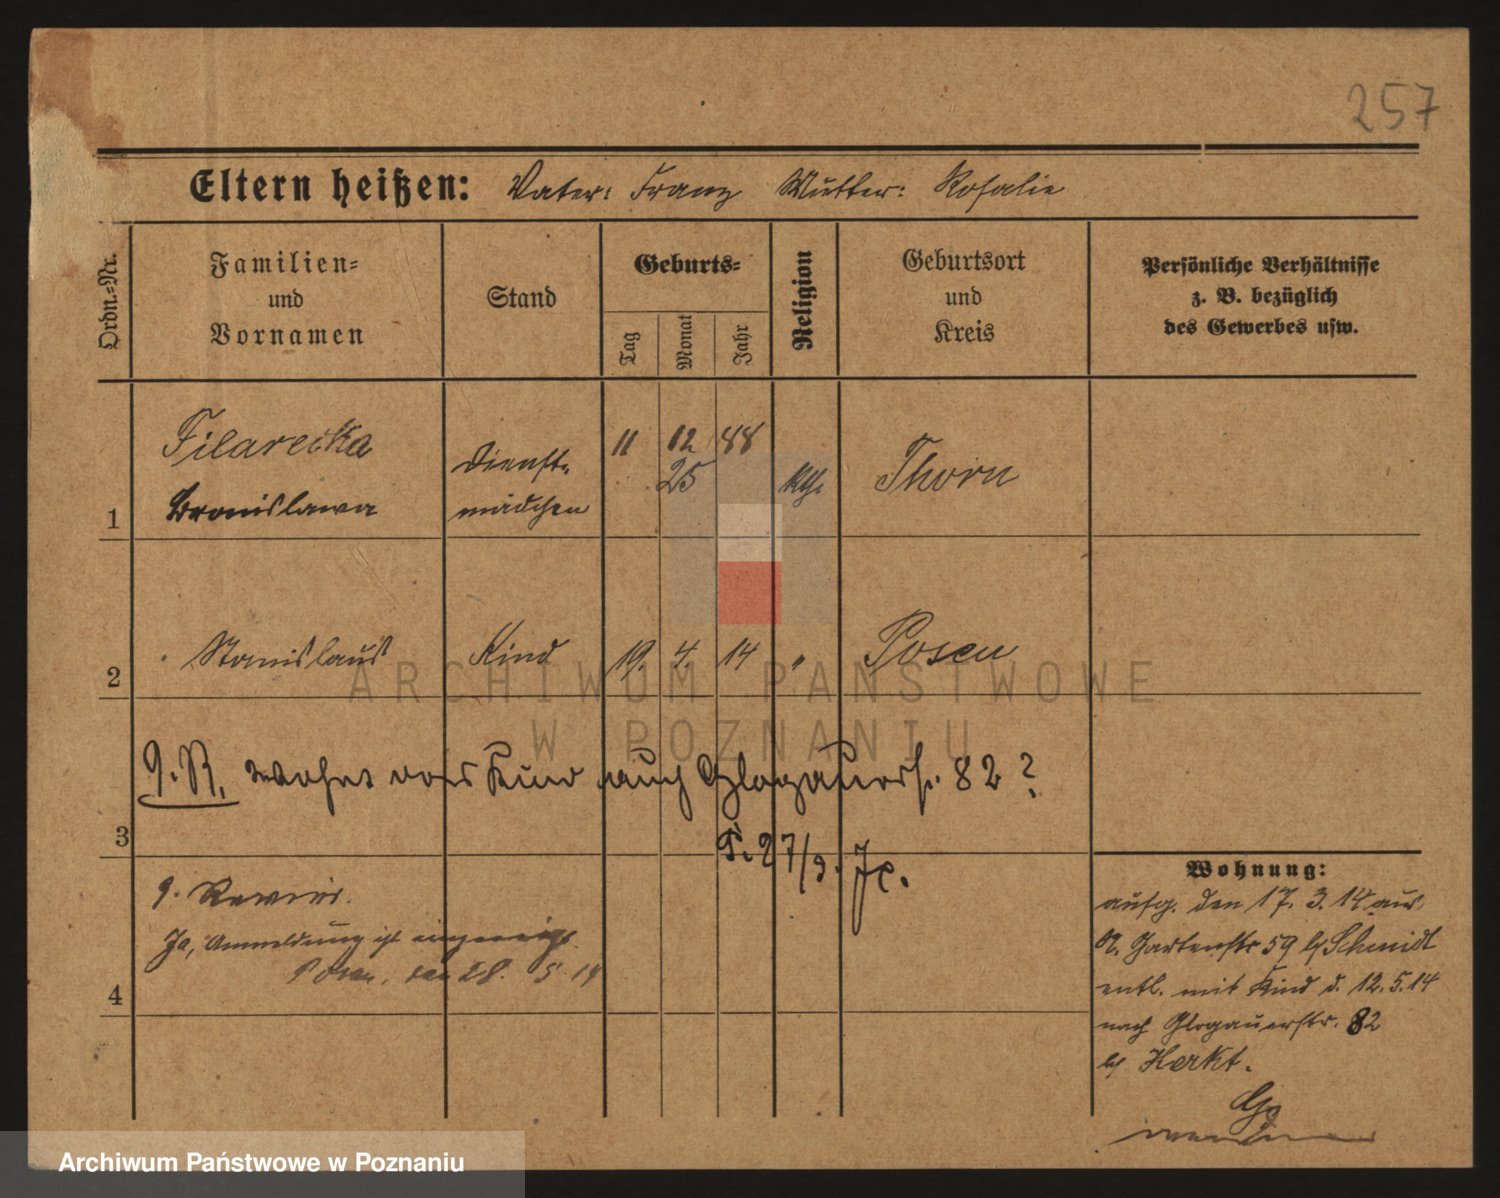 257
Eltern heißen: Vater: Franz Mutter: Rosalie
Ordn.-Nr.
Familien-
und
Vornamen
Stand
Geburts-
Tag
Monat
Jahr
Religion
Geburtsort
und
Kreis
Persönliche Verhältnisse
z. B. bezüglich
des Gewerbes usw.
1
Filarecka
Bronislawa
Dienst-
mädchen
11
12
25
88
kth.
Thorn
2
Stanislaus
Kind
19.
4.
14
"
Posen
3
9. R. wohnt das Kind auch Glogauerstr. 82?
P. 27/5.
4
9. Revier.
Ja, Anmeldung ist
Posen, den 28. 5. 14
Wohnung:
aufg. den 17. 3. 14 aus
N. Gartenstr 59 b/ Schmidt
entl. mit Kind d. 12. 5. 14
nach Glogauerstr. 82
b/ Herkt.
ARCHIWUM PAŃSTWOWE
W POZNANIU
Archiwum Państwowe w Poznaniu